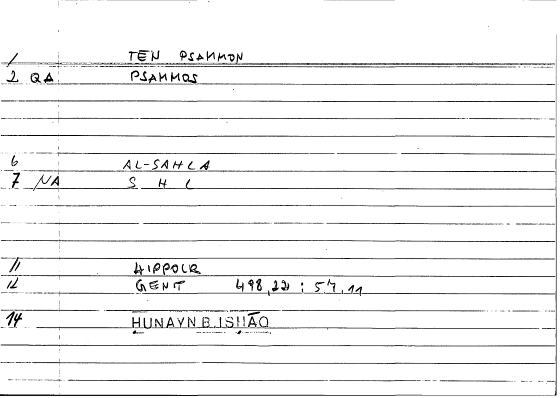 1 TEN PSAMMON
2 QA PSAMMOS
6 AL-SAHLA
7 NA S H L
11 HIPPOCR
12 GENIT 498,22 : 57,11
14 HUNAYN B. ISḤĀQ